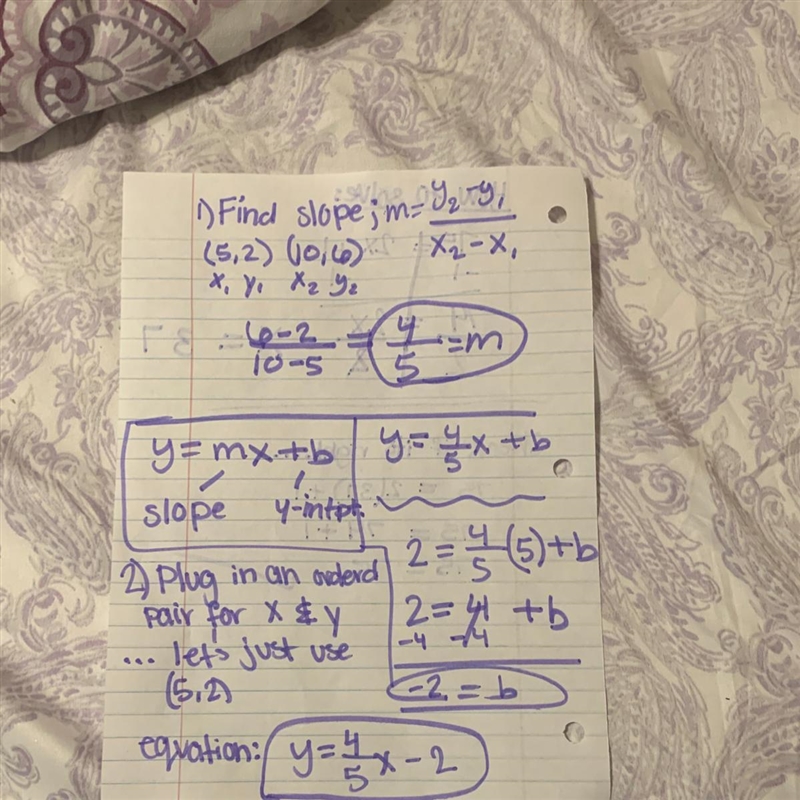 1) Find slope; m = y₂-y₁ / x₂-x₁
(5,2) (10,6)
x₁ y₁ x₂ y₂
6-2 / 10-5 = 4/5 = m
y = mx + b
slope y-intpt.
y = 4/5 x + b
2 = 4/5 (5) + b
2 = 4 + b
-4 -4
-2 = b
2) Plug in an orderd
pair for x & y
... lets just use
(5,2)
equation: y = 4/5 x - 2